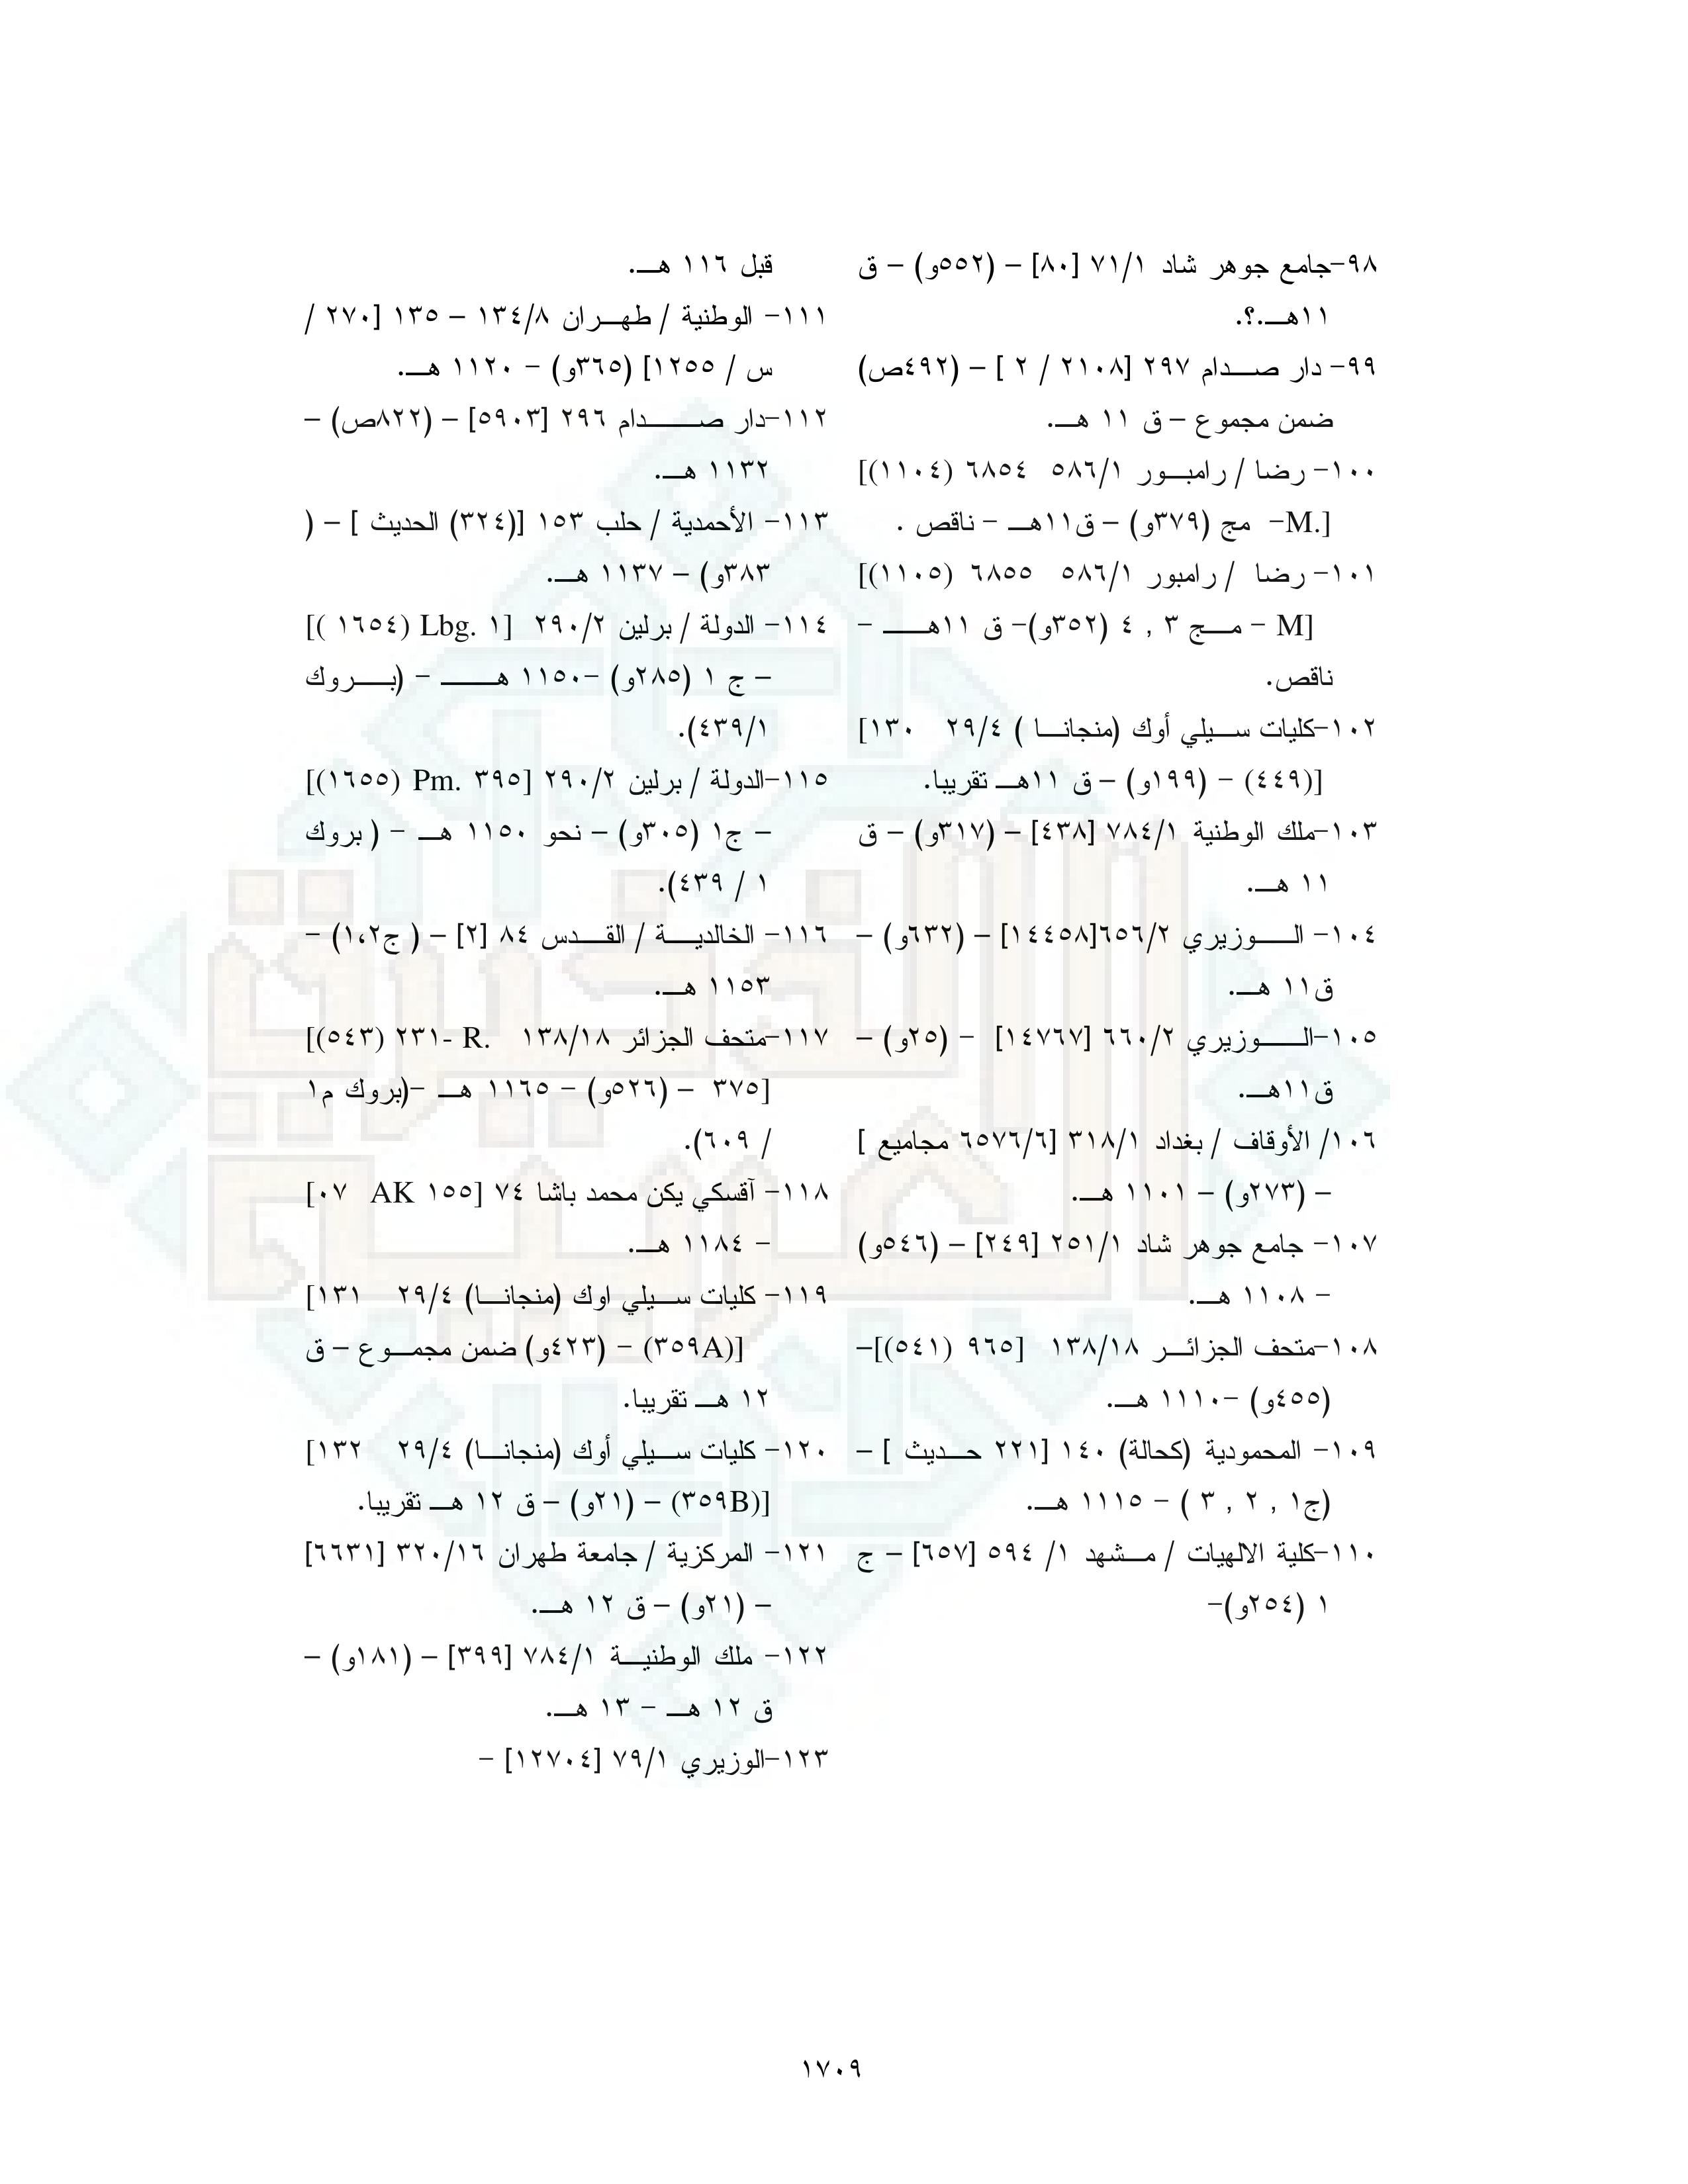 ٩٨-جامع جوهر شاد ٧١/١ [٨٠] – (٥٥٢و) – ق
١١هـ.؟.
٩٩- دار صدام ٢٩٧ [٢١٠٨ / ٢ ] – (٤٩٢ص)
ضمن مجموع – ق ١١ هـ.
١٠٠- رضا / رامبور ٥٨٦/١ ٦٨٥٤ (١١٠٤)]
[.M- مج (٣٧٩و) – ق١١هـ - ناقص .
١٠١- رضا / رامبور ٥٨٦/١ ٦٨٥٥ (١١٠٥)]
[M - مج ٣ , ٤ (٣٥٢و)- ق ١١هـ -
ناقص.
١٠٢-كليات سيلي أوك (منجانا ) ٢٩/٤ ١٣٠]
[(٤٤٩) - (١٩٩و) – ق ١١هـ تقريبا.
١٠٣-ملك الوطنية ٧٨٤/١ [٤٣٨] – (٣١٧و) – ق
١١ هـ.
١٠٤- الوزيري ٦٥٦/٢[١٤٤٥٨] – (٦٣٢و) –
ق١١ هـ.
١٠٥-الوزيري ٦٦٠/٢ [١٤٧٦٧] - (٢٥و) –
ق١١هـ.
١٠٦/ الأوقاف / بغداد ٣١٨/١ [٦٥٧٦/٦ مجاميع ]
– (٢٧٣و) – ١١٠١ هـ.
١٠٧- جامع جوهر شاد ٢٥١/١ [٢٤٩] – (٥٤٦و)
- ١١٠٨ هـ.
١٠٨-متحف الجزائر ١٣٨/١٨ [٩٦٥ (٥٤١)]–
(٤٥٥و) -١١١٠ هـ.
١٠٩- المحمودية (كحالة) ١٤٠ [٢٢١ حديث ] –
(ج١ , ٢ , ٣ ) - ١١١٥ هـ.
١١٠-كلية الالهيات / مشهد ١/ ٥٩٤ [٦٥٧] – ج
١ (٢٥٤و)-
قبل ١١٦ هـ.
١١١- الوطنية / طهران ١٣٤/٨ – ١٣٥ [٢٧٠ /
س / ١٢٥٥] (٣٦٥و) - ١١٢٠ هـ.
١١٢-دار صدام ٢٩٦ [٥٩٠٣] – (٨٢٢ص) –
١١٣٢ هـ.
١١٣- الأحمدية / حلب ١٥٣ [(٣٢٤) الحديث ] – (
٣٨٣و) – ١١٣٧ هـ.
١١٤- الدولة / برلين ٢٩٠/٢ [١ .Lbg (١٦٥٤ )]
– ج ١ (٢٨٥و) -١١٥٠ هـ - (بروك
٤٣٩/١).
١١٥-الدولة / برلين ٢٩٠/٢ [٣٩٥ .Pm (١٦٥٥)]
– ج١ (٣٠٥و) – نحو ١١٥٠ هـ - ( بروك
١ / ٤٣٩).
١١٦- الخالدية / القدس ٨٤ [٢] – ( ج١،٢) -
١١٥٣ هـ.
١١٧-متحف الجزائر ١٣٨/١٨ .R -٢٣١ (٥٤٣)]
[٣٧٥ – (٥٢٦و) - ١١٦٥ هـ -(بروك م١
/ ٦٠٩).
١١٨- آقسكي يكن محمد باشا ٧٤ [١٥٥ AK ٠٧]
- ١١٨٤ هـ.
١١٩- كليات سيلي اوك (منجانا) ٢٩/٤ ١٣١]
[(٣٥٩A) - (٤٢٣و) ضمن مجموع – ق
١٢ هـ تقريبا.
١٢٠- كليات سيلي أوك (منجانا) ٢٩/٤ ١٣٢]
[(٣٥٩B) – (٢١و) – ق ١٢ هـ تقريبا.
١٢١- المركزية / جامعة طهران ٣٢٠/١٦ [٦٦٣١]
– (٢١و) – ق ١٢ هـ.
١٢٢- ملك الوطنية ٧٨٤/١ [٣٩٩] – (١٨١و) –
ق ١٢ هـ - ١٣ هـ.
١٢٣-الوزيري ٧٩/١ [١٢٧٠٤] -
الذخيرة
العربية
١٧٠٩